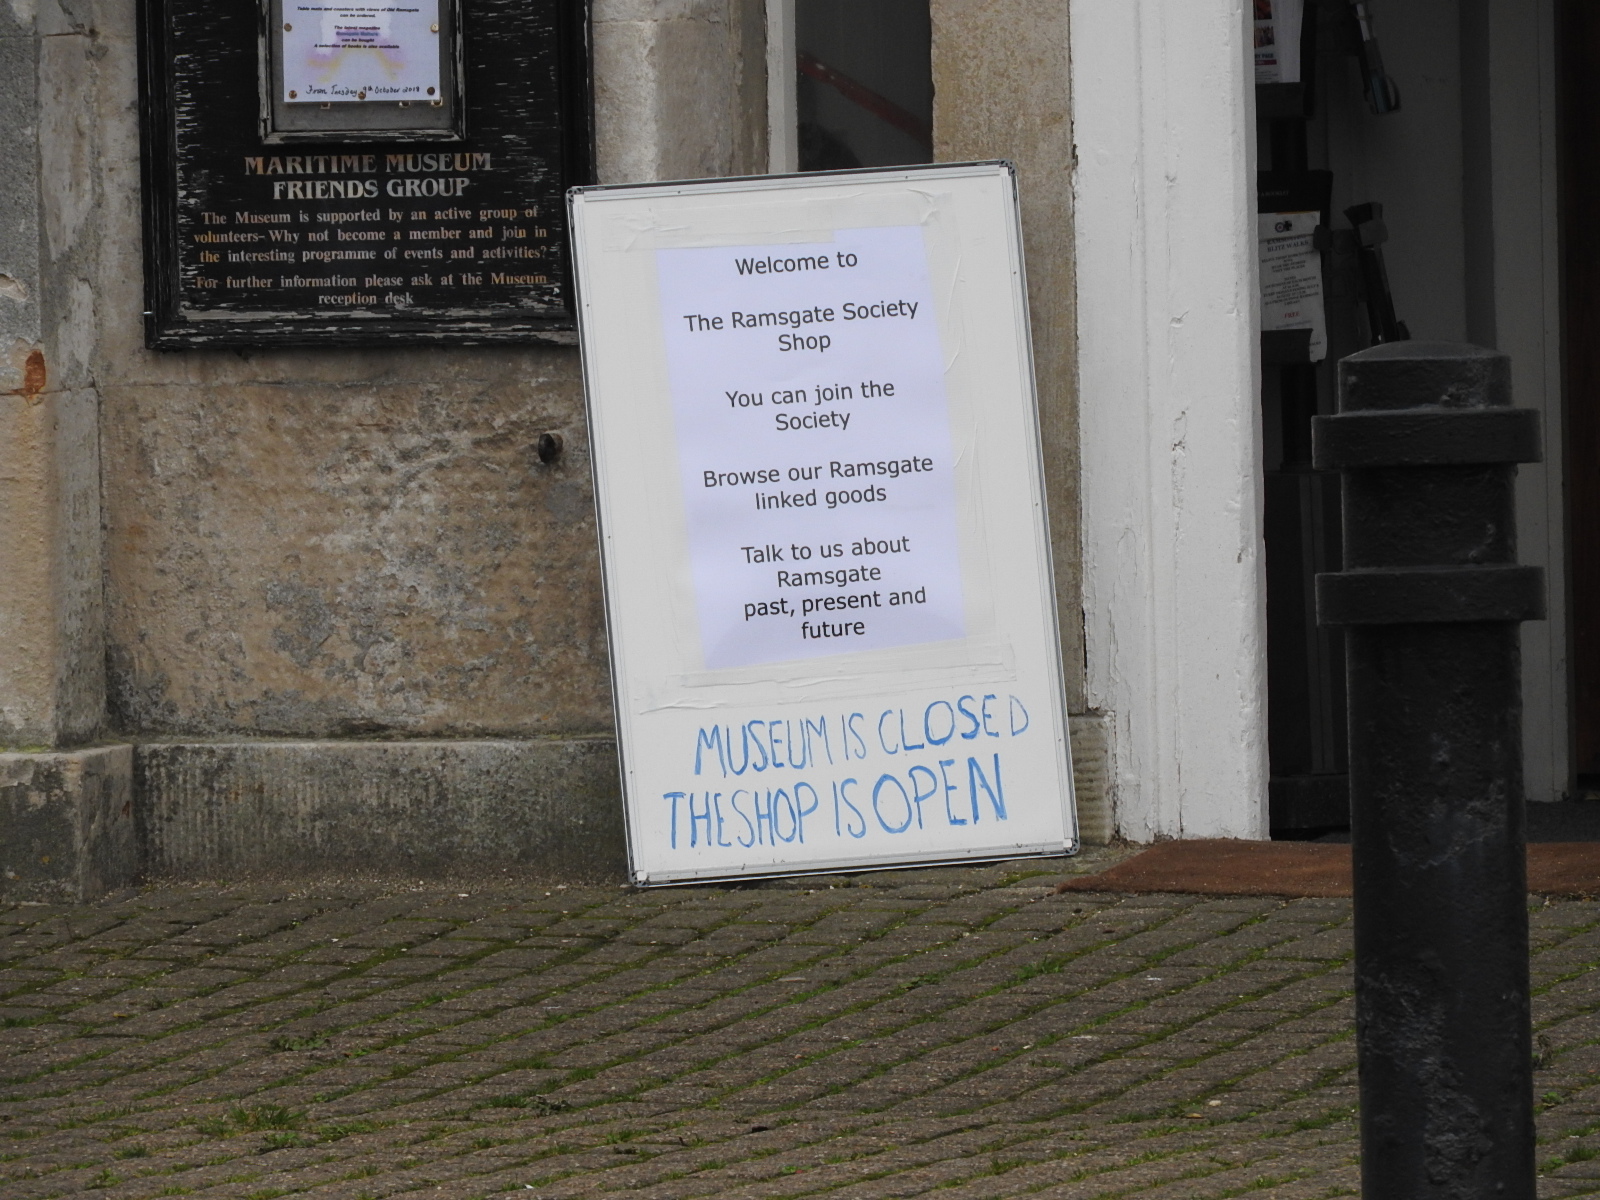 Table mats and coasters with views of Old Ramsgate
can be ordered.
The latest magazine
Ramsgate Matters
can be bought
A selection of books is also available
From Tuesday 9th October 2018
MARITIME MUSEUM
FRIENDS GROUP
The Museum is supported by an active group of
volunteers-Why not become a member and join in
the interesting programme of events and activities?
For further information please ask at the Museum
reception desk
Welcome to
The Ramsgate Society
Shop
You can join the
Society
Browse our Ramsgate
linked goods
Talk to us about
Ramsgate
past, present and
future
MUSEUM IS CLOSED
THE SHOP IS OPEN
FREE